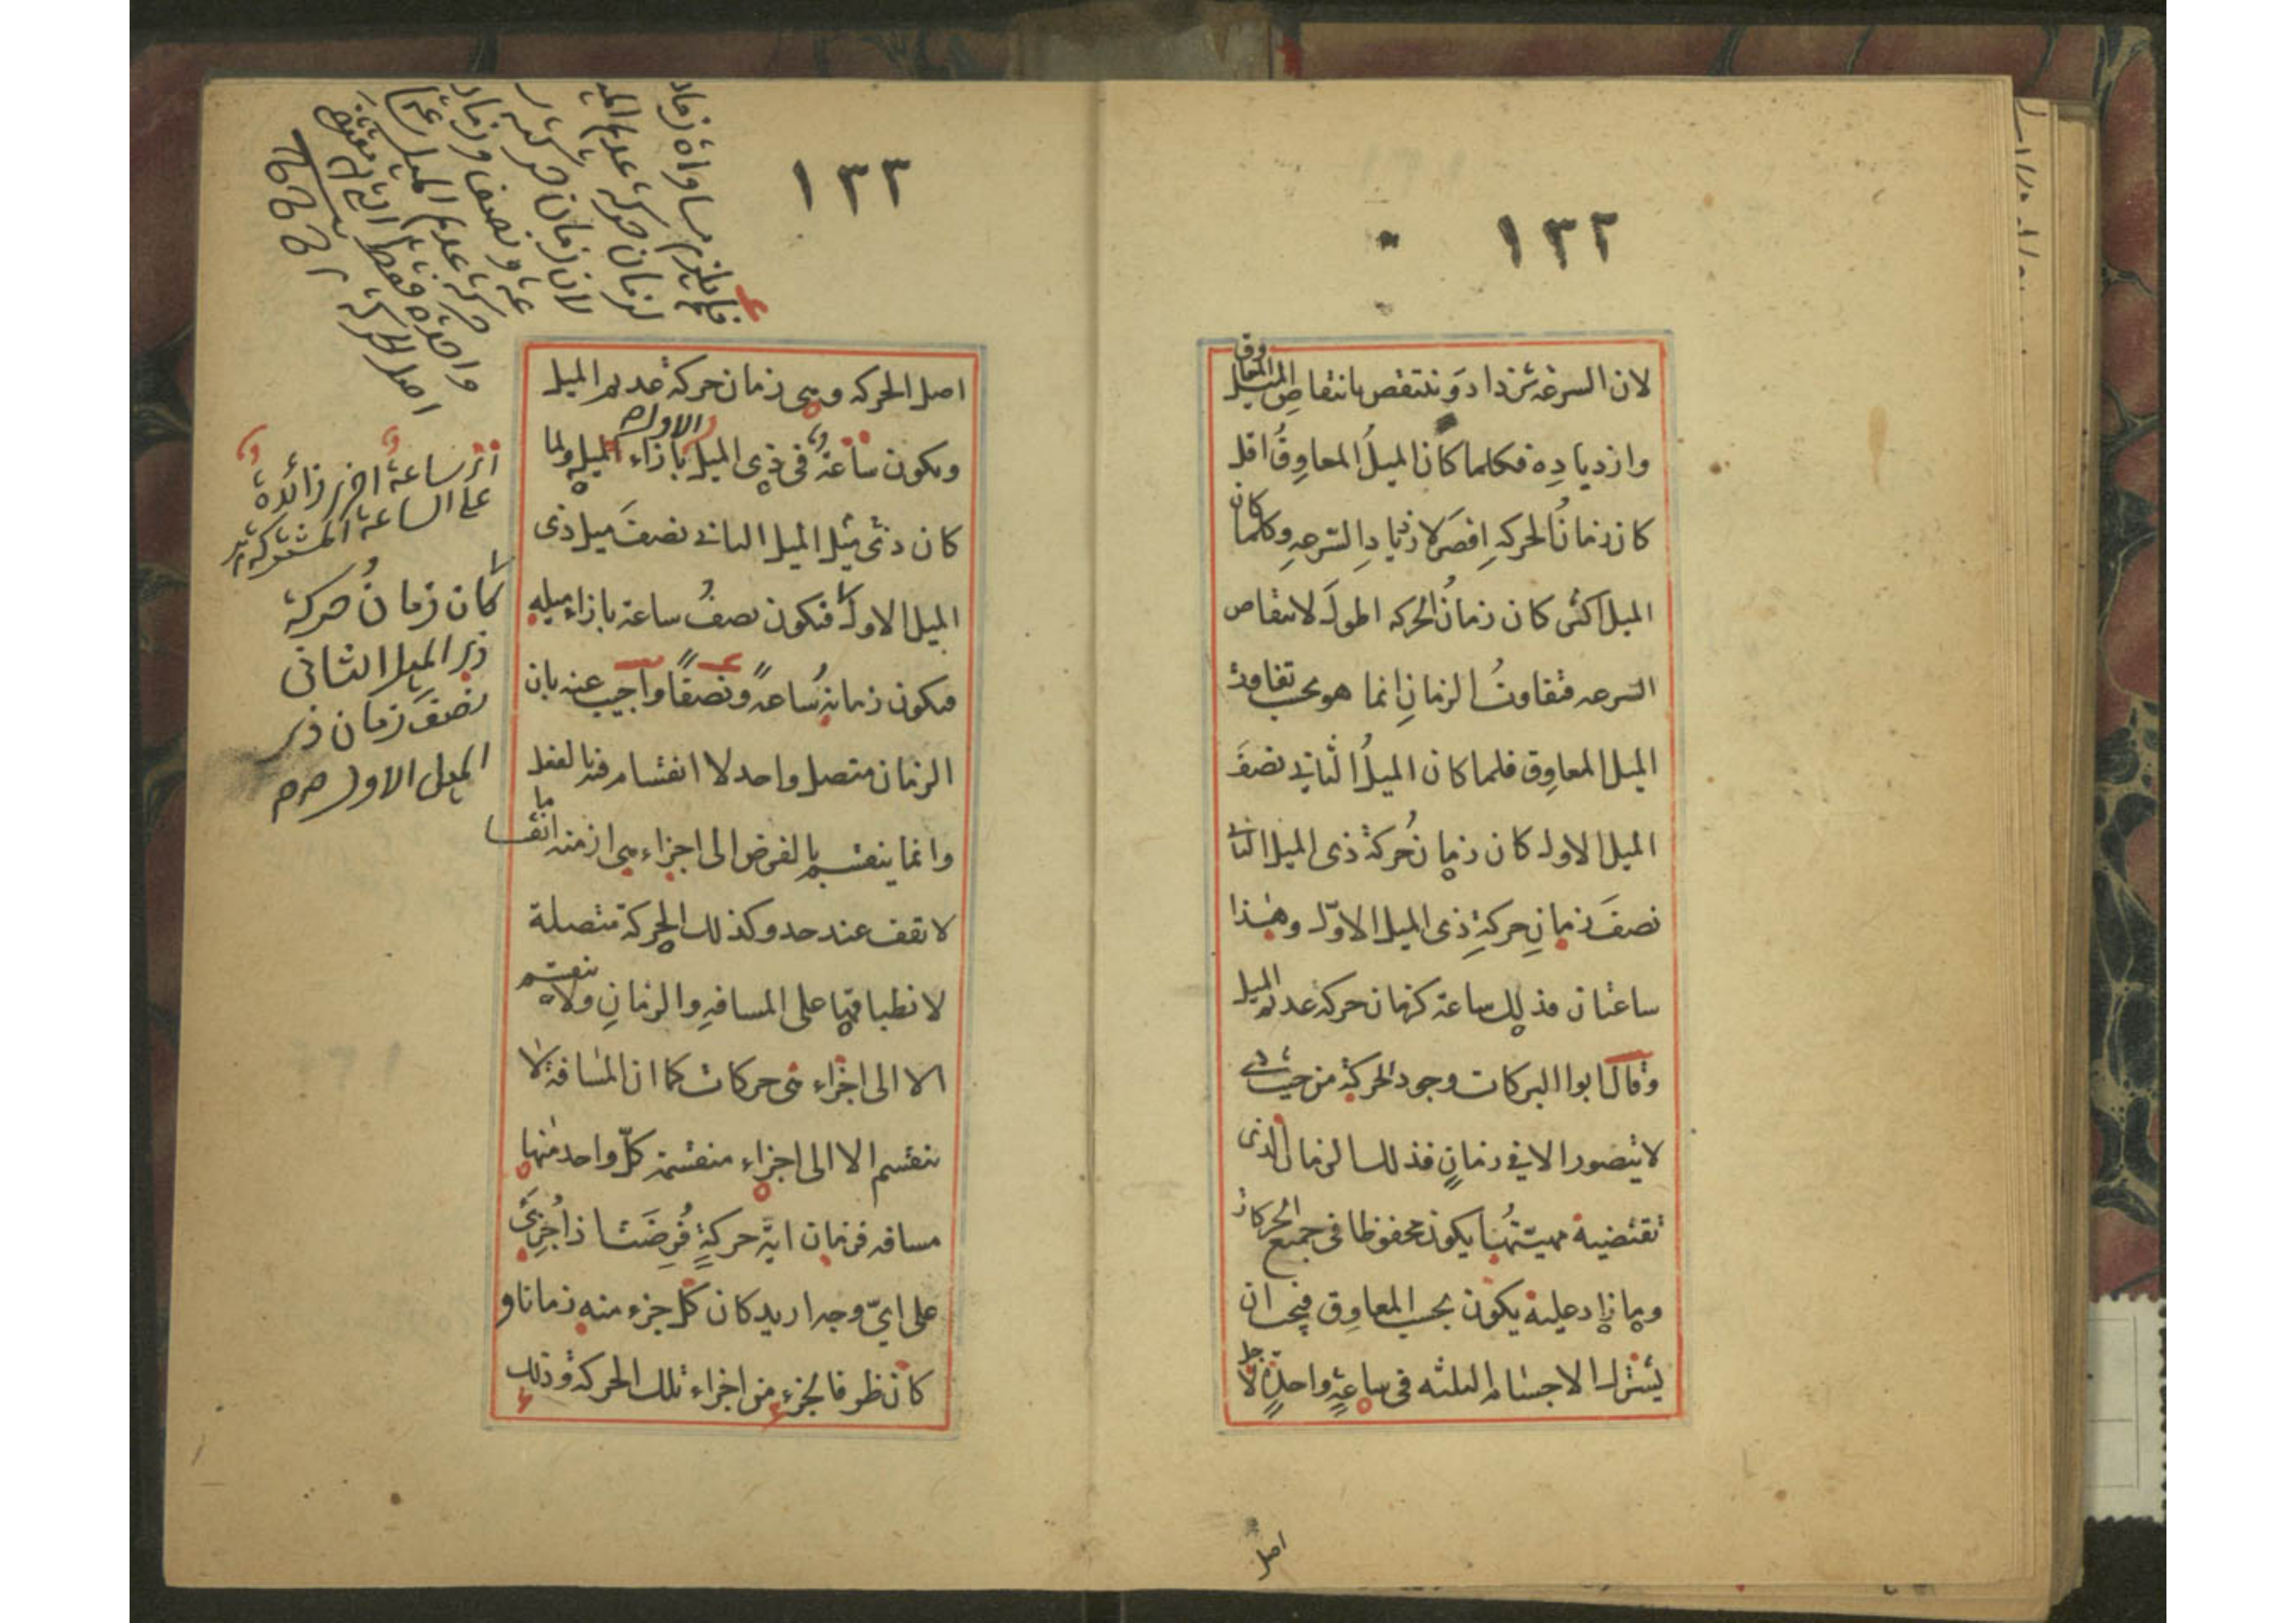 ١٣٢
لان السرعة تزداد وتنتقص بانتقاص الميل المعاوق
وازدياده فكلما كان الميل المعاوق اقل
كان زمان الحركه اقصر لازدياد السرعه وكلما كان
الميل اكثر كان زمان الحركه اطول لانتقاص
السرعه فتفاوت الزمان انما هو بحسب تفاوت
الميل المعاوق فلما كان الميل الثاني نصف
الميل الاول كان زمان حركة ذى الميل الثاني
نصف زمان حركة ذى الميل الاول وهذا
ساعتان فذلك ساعة كزمان حركة عديم الميل
وقال ابوا البركات وجود الحركة من حيث هي
لا يتصور الا في زمان فذلك الزمان الذى
تقتضيه مهيتها يكون محفوظا فى جميع الحركات
وما زاد عليه يكون بحسب المعاوق فيجب ان
يشترك الاجسام الثلثه فى ساعة واحدة لاجل
اصل
١٣٣
اصل الحركه وهى زمان حركة عديم الميل
ويكون ساعة فى ذى الميل الاول بازاء الميل ولما
كان ذى الميل الثانى نصف ميل ذى
الميل الاول فتكون نصف ساعة بازاء ميله
فيكون زمانه ساعة ونصفا واجيب عنه بان
الزمان متصل واحد لا انقسام فيه بالفعل
وانما ينقسم بالفرض الى اجزاء هى ازمنه انقساما
لا تقف عند حد وكذلك الحركة متصلة
لانطباقها على المسافه والزمان ولا تنقسم
الا الى اجزاء هى حركات كما ان المسافة لا
تنقسم الا الى اجزاء منقسمة كل واحد منها
مسافه فزمان اية حركة فرضت اذا جزى
على اى وجه اريد كان كل جزء منه زمانا و
كان ظرفا لجزء من اجزاء تلك الحركة وذلك
فلم يلزم مساواة زمان
لزمان حركة عديم الميل
لان زمان حركته
عة ونصف وزمان
حركة عديم الميل
واحدة فقط
اصل الحركة
ساعة اخرى زائدة
على الساعة المشتركة
كان زمان حركة
ذى الميل الثانى
نصف زمان ذى
الميل الاول